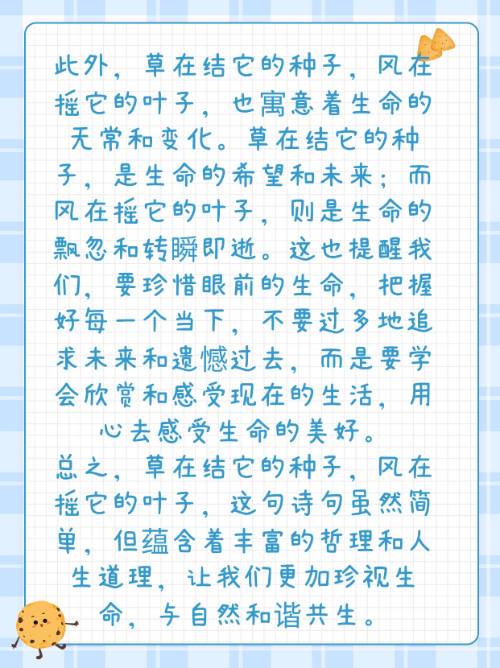 此外，草在结它的种子，风在
摇它的叶子，也寓意着生命的
无常和变化。草在结它的种
子，是生命的希望和未来；而
风在摇它的叶子，则是生命的
飘忽和转瞬即逝。这也提醒我
们，要珍惜眼前的生命，把握
好每一个当下，不要过多地追
求未来和遗憾过去，而是要学
会欣赏和感受现在的生活，用
心去感受生命的美好。
总之，草在结它的种子，风在
摇它的叶子，这句诗句虽然简
单，但蕴含着丰富的哲理和人
生道理，让我们更加珍视生
命，与自然和谐共生。